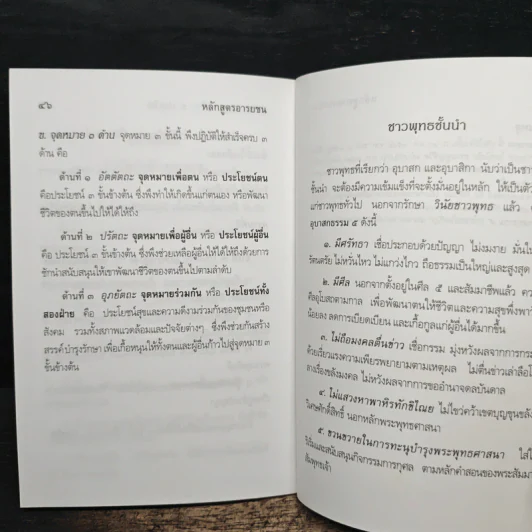 ๔๖ หลักสูตรอารยชน
ข. จุดหมาย ๓ ด้าน จุดหมาย ๓ ขั้นนี้ พึงปฏิบัติให้สำเร็จครบ ๓
ด้าน คือ
ด้านที่ ๑ อัตตัตถะ จุดหมายเพื่อตน หรือ ประโยชน์ตน
คือประโยชน์ ๓ ขั้นข้างต้น ซึ่งพึงทำให้เกิดขึ้นแก่ตนเอง หรือพัฒนา
ชีวิตของตนขึ้นไปให้ได้ให้ถึง
ด้านที่ ๒ ปรัตถะ จุดหมายเพื่อผู้อื่น หรือ ประโยชน์ผู้อื่น
คือ ประโยชน์ ๓ ขั้นข้างต้น ซึ่งพึงช่วยเหลือผู้อื่นให้ได้ให้ถึงด้วยการ
ชักนำสนับสนุนให้เขาพัฒนาชีวิตของตนขึ้นไปตามลำดับ
ด้านที่ ๓ อุภยัตถะ จุดหมายร่วมกัน หรือ ประโยชน์ทั้ง
สองฝ่าย คือ ประโยชน์สุขและความดีงามร่วมกันของชุมชนหรือ
สังคม รวมทั้งสภาพแวดล้อมและปัจจัยต่างๆ ซึ่งพึงช่วยกันสร้าง
สรรค์ บำรุงรักษา เพื่อเกื้อหนุนให้ทั้งตนและผู้อื่นก้าวไปสู่จุดหมาย ๓
ขั้นข้างต้น
ชาวพุทธชั้นนำ
ชาวพุทธที่เรียกว่า อุบาสก และอุบาสิกา นับว่าเป็นชาว
ชั้นนำ จะต้องมีความเข้มแข็งที่จะตั้งมั่นอยู่ในหลัก ให้เป็นตัว
แก่ชาวพุทธทั่วไป นอกจากรักษา วินัยชาวพุทธ แล้ว
อุบาสกธรรม ๕ ดังนี้
๑. มีศรัทธา เชื่อประกอบด้วยปัญญา ไม่งมงาย มั่นใ
รัตนตรัย ไม่หวั่นไหว ไม่แกว่งไกว ถือธรรมเป็นใหญ่และสูงสุด
๒. มีศีล นอกจากตั้งอยู่ในศีล ๕ และสัมมาชีพแล้ว คว
ศีลอุโบสถตามกาล เพื่อพัฒนาตนให้ชีวิตและความสุขพึ่งพา
น้อยลง ลดการเบียดเบียน และเกื้อกูลแก่ผู้อื่นได้มากขึ้น
๓. ไม่ถือมงคลตื่นข่าว เชื่อกรรม มุ่งหวังผลจากการกระ
ด้วยเรี่ยวแรงความเพียรพยายามตามเหตุผล ไม่ตื่นข่าวเล่าลือโ
ลางเรื่องขลังมงคล ไม่หวังผลจากการขออำนาจดลบันดาล
๔. ไม่แสวงหาพาหิรทักขิไณย ไม่ไขว่คว้าเขตบุญขุนขลัง
วิเศษศักดิ์สิทธิ์ นอกหลักพระพุทธศาสนา
๕. ขวนขวายในการทะนุบำรุงพระพุทธศาสนา ใส่ใ
ริเริ่มและสนับสนุนกิจกรรมการกุศล ตามหลักคำสอนของพระสัมมา
สัมพุทธเจ้า